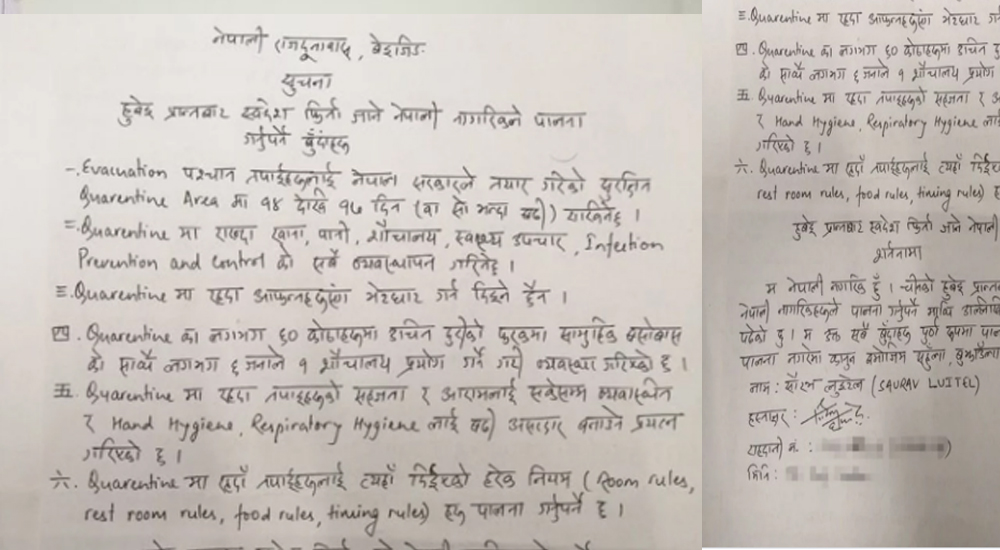 नेपाली राजदूतावास, बेइजिङ
सुचना
हुबेइ प्रान्तबाट स्वदेश फिर्ता जाने नेपाली नागरिकले पालना
गर्नुपर्ने बुँदाहरु
一. Evacuation पश्चात तपाईहरुलाई नेपाल सरकारले तयार गरेको सुरक्षित
Quarentine Area मा १४ देखि १७ दिन (वा सो भन्दा बढी) राखिनेछ ।
二. Quarentine मा राख्दा खाना, पानी, शौचालय, स्वास्थ्य उपचार, Infection
Prevention and Control को सबै व्यवस्थापन गरिनेछ ।
三. Quarentine मा रहदा आफन्तहरुसंग भेटघाट गर्न दिइने छैन ।
四. Quarentine का लगभग ६० कोठाहरुमा उचित दुरीको फरकमा सामुहिक बसोबास
को साथै लगभग ६ जनाले १ शौचालय प्रयोग गर्ने गरी व्यवस्था गरिएको छ ।
五. Quarentine मा रहदा तपाइहरुको सहजता र आरामलाई सकेसम्म व्यवास्थित
र Hand Hygiene, Respiratory Hygiene लाई बढी असरदार बनाउने प्रयत्न
गरिएको छ ।
六. Quarentine मा रहदाँ तपाईहरुलाई त्यहाँ दिईएको हरेक नियम (Room rules,
rest room rules, food rules, timing rules) हरु पालना गर्नुपर्ने छ ।
三. Quarentine मा रहदा आफन्तहरुसंग भेटघाट गर्न
四. Quarentine का लगभग ६० कोठाहरुमा उचित
को साथै लगभग ६ जनाले १ शौचालय प्रयोग
五. Quarentine मा रहदा तपाइहरुको सहजता र
र Hand Hygiene, Respiratory Hygiene लाई
गरिएको छ ।
六. Quarentine मा रहदाँ तपाईहरुलाई त्यहाँ दिईएको
rest room rules, food rules, timing rules) ह
हुबेइ प्रान्तबाट स्वदेश फिर्ता जाने नेपाली
शर्तनामा
म नेपाली नागरिक हुँ । चीनको हुबेइ
नेपाली नागरिकहरुले पालना गर्नुपर्ने माथि
पढेको छु । म उक्त सबै बुँदाहरु पुर्ण रुपमा
पालना नगरेमा कानुन बमोजिम
नाम : सौरभ लुइटेल (SAURAV LUITEL)
हस्ताक्षर :
राहदानी नं. :
मिति :